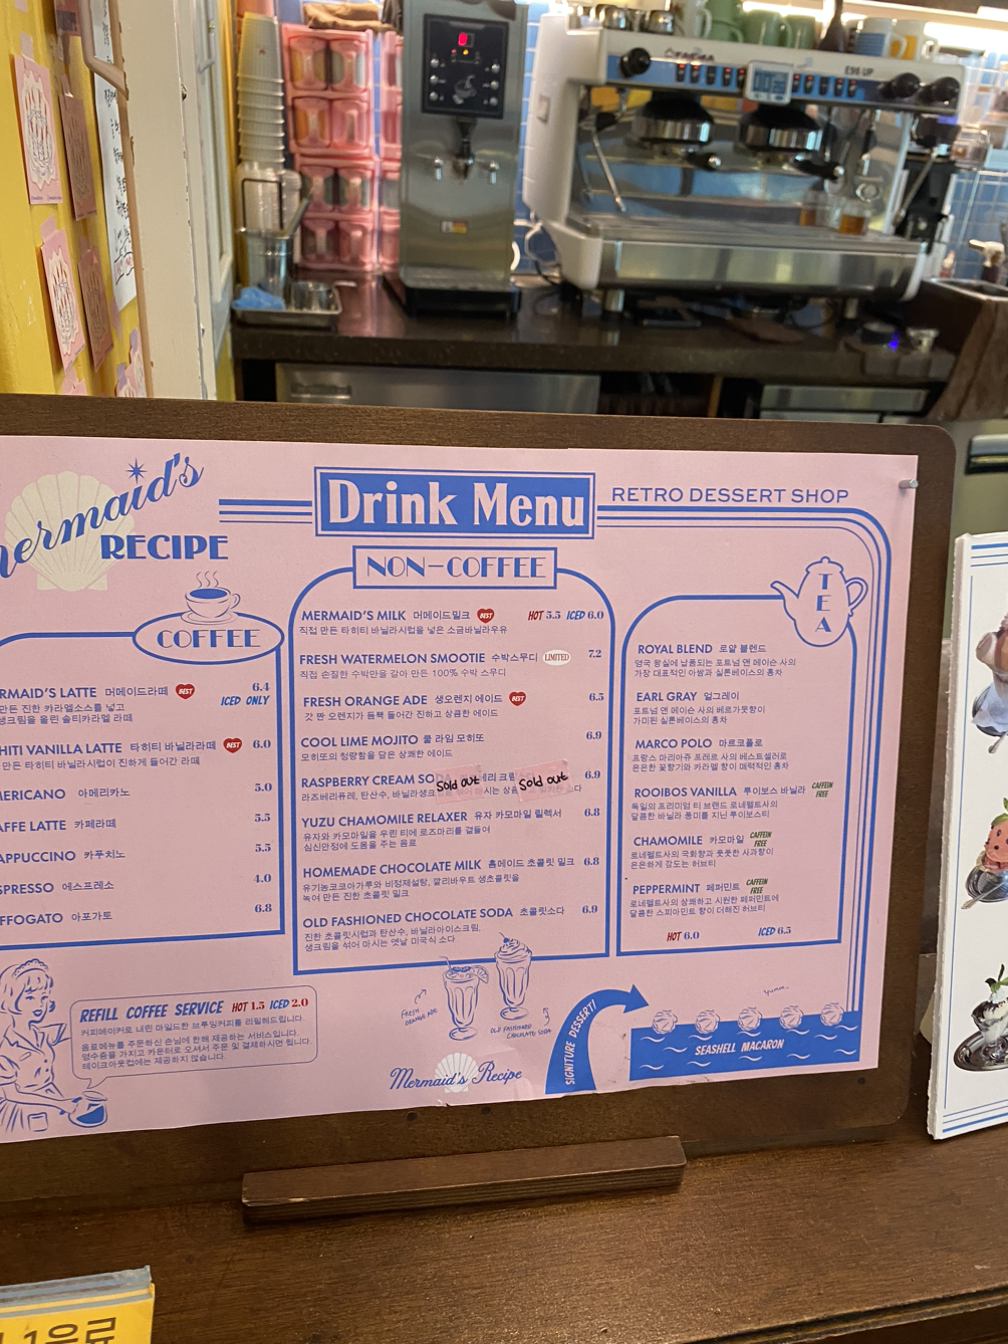 ermaid's
RECIPE
Drink Menu
RETRO DESSERT SHOP
COFFEE
RMAID'S LATTE 머메이드라떼 BEST 6.4
ICED ONLY
만든 진한 카라멜소스를 넣고
생크림을 올린 솔티카라멜 라떼
HITI VANILLA LATTE 타히티 바닐라라떼 BEST 6.0
만든 타히티 바닐라시럽이 진하게 들어간 라떼
MERICANO 아메리카노 5.0
AFFE LATTE 카페라떼 5.5
APPUCCINO 카푸치노 5.5
SPRESSO 에스프레소 4.0
FFOGATO 아포가토 6.8
REFILL COFFEE SERVICE HOT 1.5 ICED 2.0
커피메이커로 내린 마일드한 브루잉커피를 리필해드립니다.
음료메뉴를 주문하신 손님에 한해 제공하는 서비스입니다.
영수증을 가지고 카운터로 오셔서 주문 및 결제하시면 됩니다.
테이크아웃컵에는 제공하지 않습니다.
NON-COFFEE
MERMAID'S MILK 머메이드밀크 BEST HOT 5.5 ICED 6.0
직접 만든 타히티 바닐라시럽을 넣은 소금바닐라우유
FRESH WATERMELON SMOOTIE 수박스무디 LIMITED 7.2
직접 손질한 수박만을 갈아 만든 100% 수박 스무디
FRESH ORANGE ADE 생오렌지 에이드 BEST 6.5
갓 짠 오렌지가 듬뿍 들어간 진하고 상큼한 에이드
COOL LIME MOJITO 쿨 라임 모히또 6.9
모히또의 청량함을 담은 상쾌한 에이드
RASPBERRY CREAM SO Sold out Sold out 6.9
라즈베리퓨레, 탄산수, 바닐라생크
YUZU CHAMOMILE RELAXER 유자 카모마일 릴렉서 6.8
유자와 카모마일을 우린 티에 로즈마리를 곁들여
심신안정에 도움을 주는 음료
HOMEMADE CHOCOLATE MILK 홈메이드 초콜릿 밀크 6.8
유기농코코아가루와 비정제설탕, 깔리바우트 생초콜릿을
녹여 만든 진한 초콜릿 밀크
OLD FASHIONED CHOCOLATE SODA 초콜릿소다 6.9
진한 초콜릿시럽과 탄산수, 바닐라아이스크림,
생크림을 섞어 마시는 옛날 미국식 소다
FRESH ORANGE ADE
OLD FASHIONED CHOCOLATE SODA
Mermaid's Recipe
TEA
ROYAL BLEND 로얄 블렌드
영국 왕실에 납품되는 포트넘 앤 메이슨 사의
가장 대표적인 아쌈과 실론베이스의 홍차
EARL GRAY 얼그레이
포트넘 앤 메이슨 사의 베르가못향이
가미된 실론베이스의 홍차
MARCO POLO 마르코폴로
프랑스 마리아쥬 프레르 사의 베스트셀러로
은은한 꽃향기와 카라멜 향이 매력적인 홍차
ROOIBOS VANILLA 루이보스 바닐라 CAFFEIN FREE
독일의 프리미엄 티 브랜드 로네펠트사의
달콤한 바닐라 풍미를 지닌 루이보스티
CHAMOMILE 카모마일 CAFFEIN FREE
로네펠트사의 국화향과 풋풋한 사과향이
은은하게 감도는 허브티
PEPPERMINT 페퍼민트 CAFFEIN FREE
로네펠트사의 상쾌하고 시원한 페퍼민트에
달콤한 스피아민트 향이 더해진 허브티
HOT 6.0 ICED 6.5
SIGNITURE DESSERT!
yumm..
SEASHELL MACARON
E98 UP
1음료